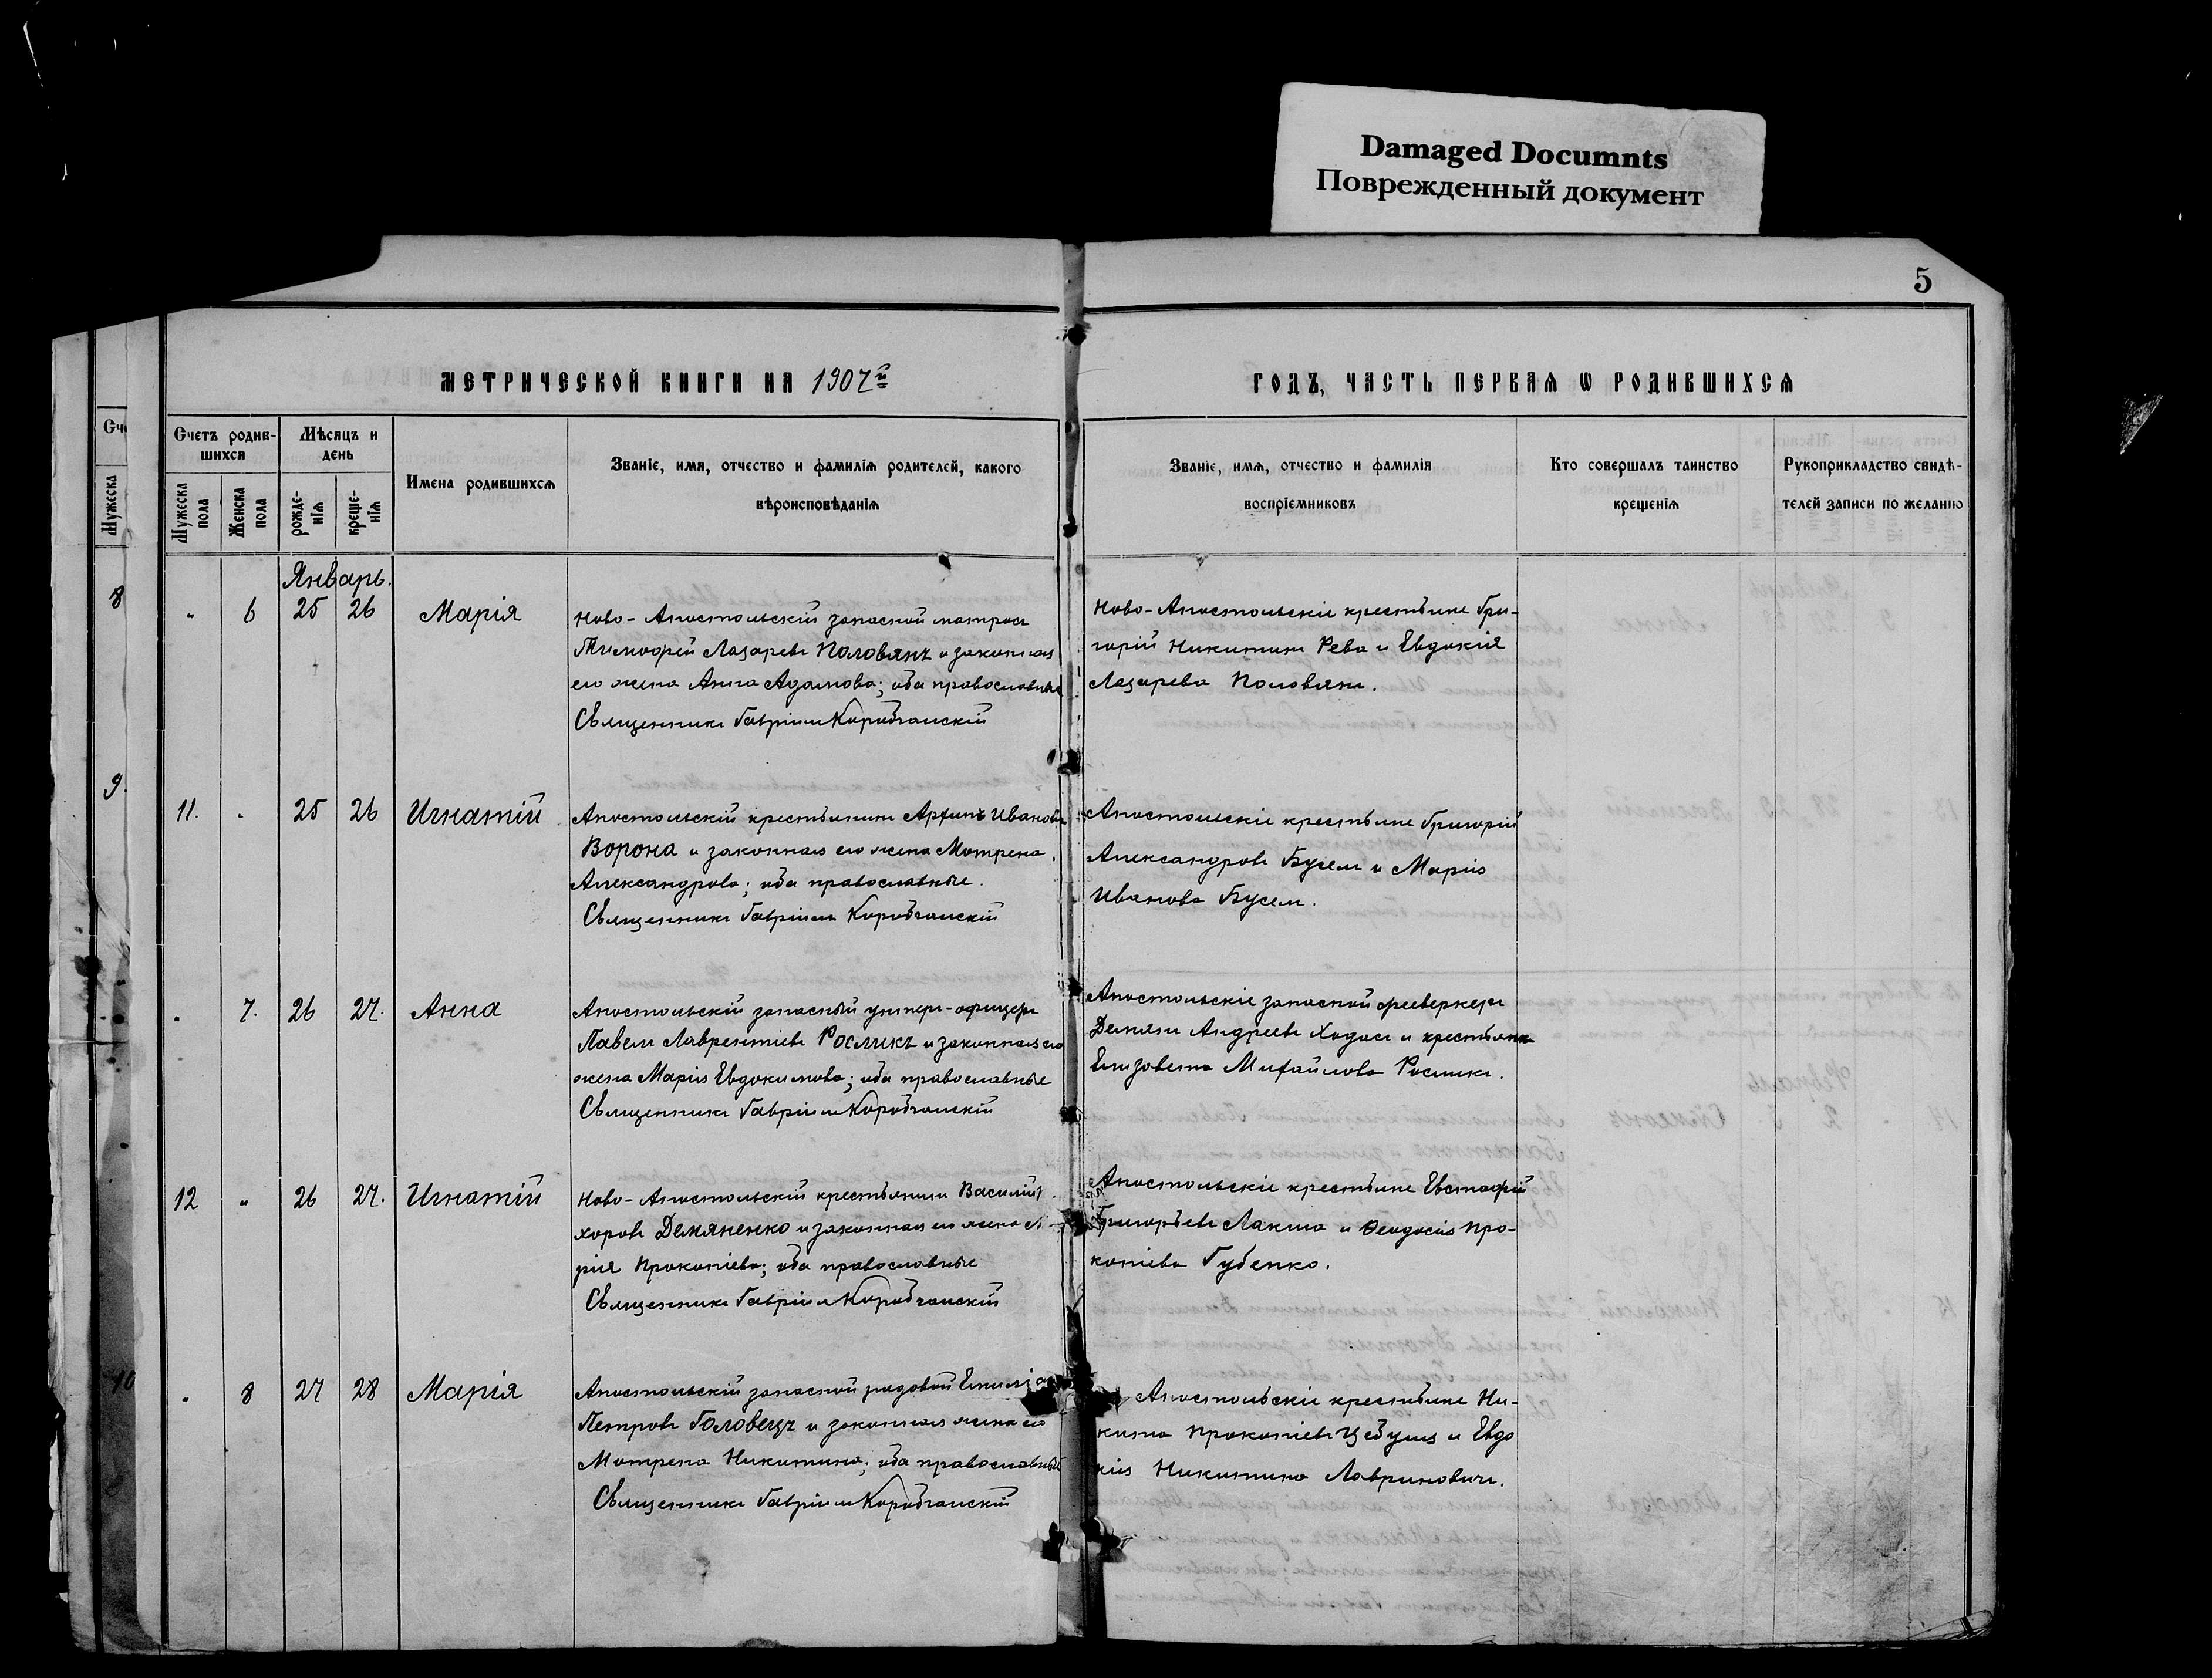 Damaged Documnts
Поврежденный документ
5
МЕТРИЧЕСКОЙ КНИГИ НА 1907й
ГОДЪ, ЧАСТЬ ПЕРВАЯ Ѡ РОДИВШИХСЯ
Счетъ родив-
шихся
Мѣсяцъ и
день
Мужеска
пола
Женска
пола
рожде-
нія
креще-
нія
Имена родившихся
Званіе, имя, отчество и фамилія родителей, какого
вѣроисповѣданія
Званіе, имя, отчество и фамилія
воспріемниковъ
Кто совершалъ таинство
крещенія
Рукоприкладство свидѣ-
телей записи по желанію
Мужеска
8
9.
10
Январь.
" 6 25 26 Марія
Ново-Апостольскій запасной матросъ
Тимофей Лазаревъ Половянъ и законная
его жена Анна Адамова; оба православные
Священникъ Гавріилъ Коробчанскій
Ново-Апостольскіе крестьяне Гри-
горій Никитинъ Рева и Евдокія
Лазарева Половянъ.
11. " 25 26 Игнатій
Апостольскій крестьянинъ Архипъ Ивановъ
Ворона и законная его жена Мотрена
Александрова; оба православные.
Священникъ Гавріилъ Коробчанскій
Апостольскіе крестьяне Григорій
Александровъ Бусел и Марія
Иванова Бусел.
" 7. 26 27. Анна
Апостольскій запасный унтеръ-офицеръ
Павелъ Лаврентіевъ Рослыкъ и законная его
жена Марія Евдокимова; оба православные
Священникъ Гавріилъ Коробчанскій
Апостольскіе запасной фееверкеръ
Демянъ Андреевъ Ходасъ и крестьянка
Елизавета Михайлова Рослыкъ.
12 " 26 27. Игнатій
Ново-Апостольскій крестьянинъ Василій
хоровъ Демяненко и законная его жена
рія Прокопіева; оба православные
Священникъ Гавріилъ Коробчанскій
Апостольскіе крестьяне Евстафій
Григорьевъ Лакиза и Феодосія Про-
копіева Губенко.
" 8 27 28 Марія
Апостольскій запасной рядовой
Петровъ Головецъ и законная жена его
Мотрена Никитина; оба православные
Священникъ Гавріилъ Коробчанскій
Апостольскіе крестьяне Ни-
кита Прокопіевъ Цебуля и Евдо
кія Никитина Лавриновичъ.